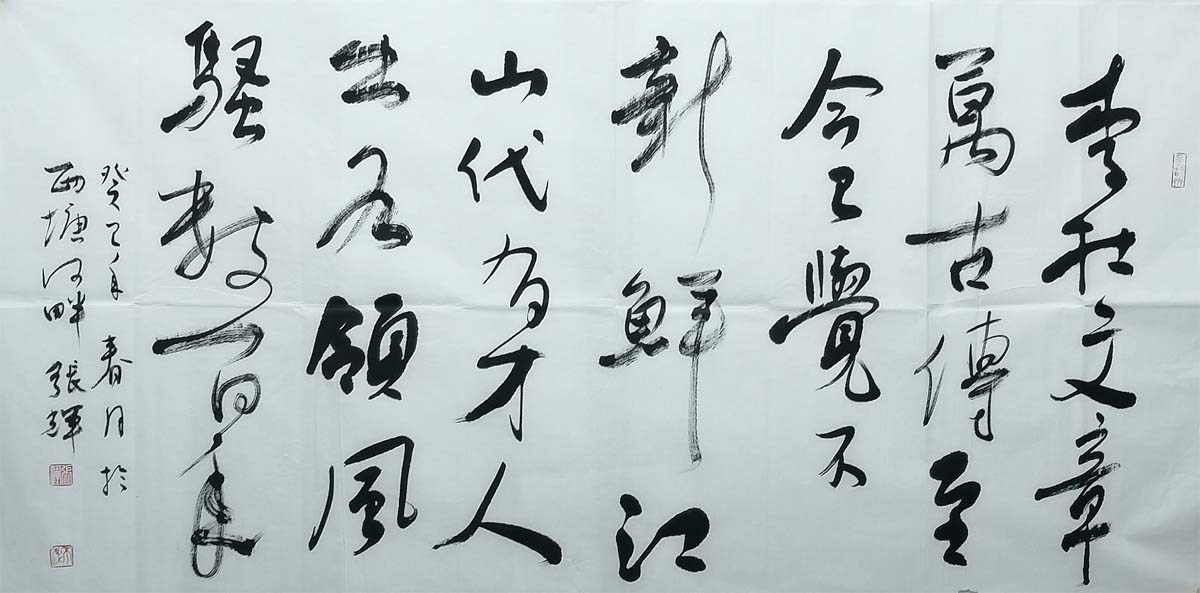 李杜文章
萬古傳至
今已覺不
新鮮江
山代有才人
出各領風
騷數百年
癸巳年春月於
西塘河畔張輝